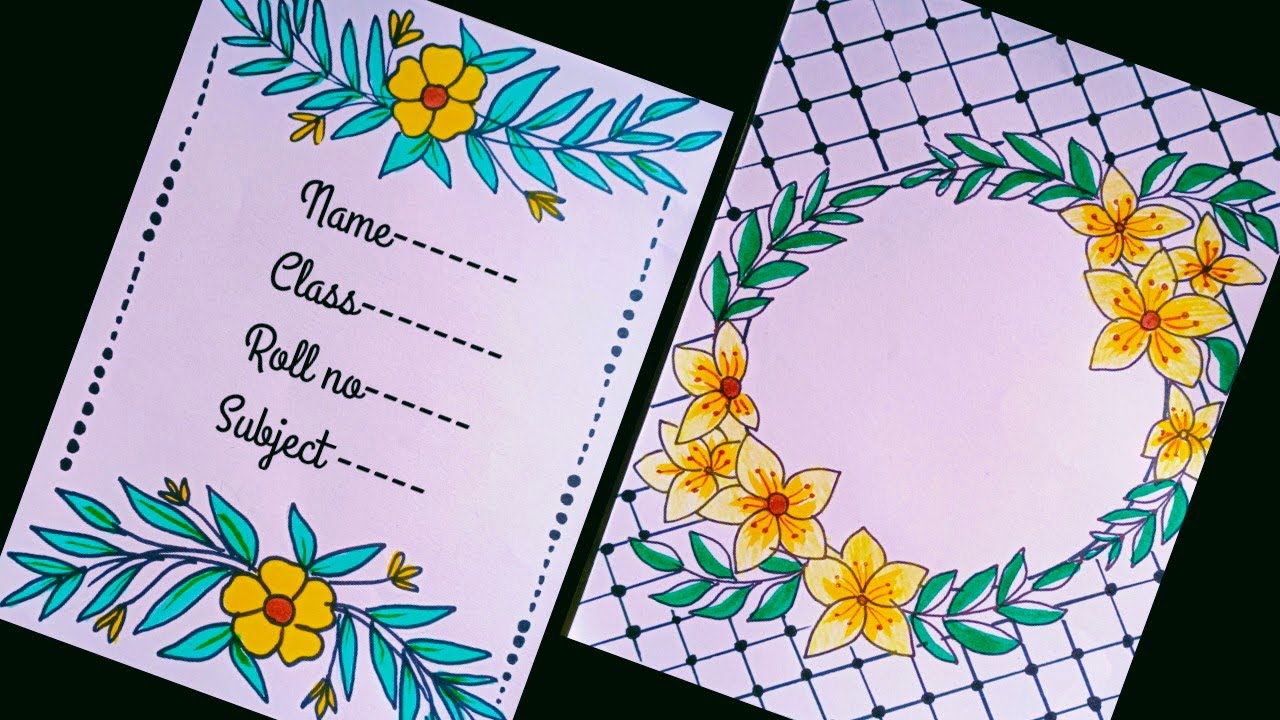 Name-------
Class--------
Roll no------
Subject-----